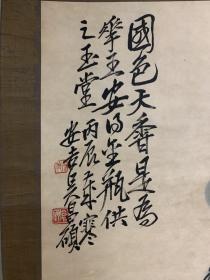 國色天香是為
華王安得金瓶供
之玉堂 丙辰歲寒
安吉吳昌碩